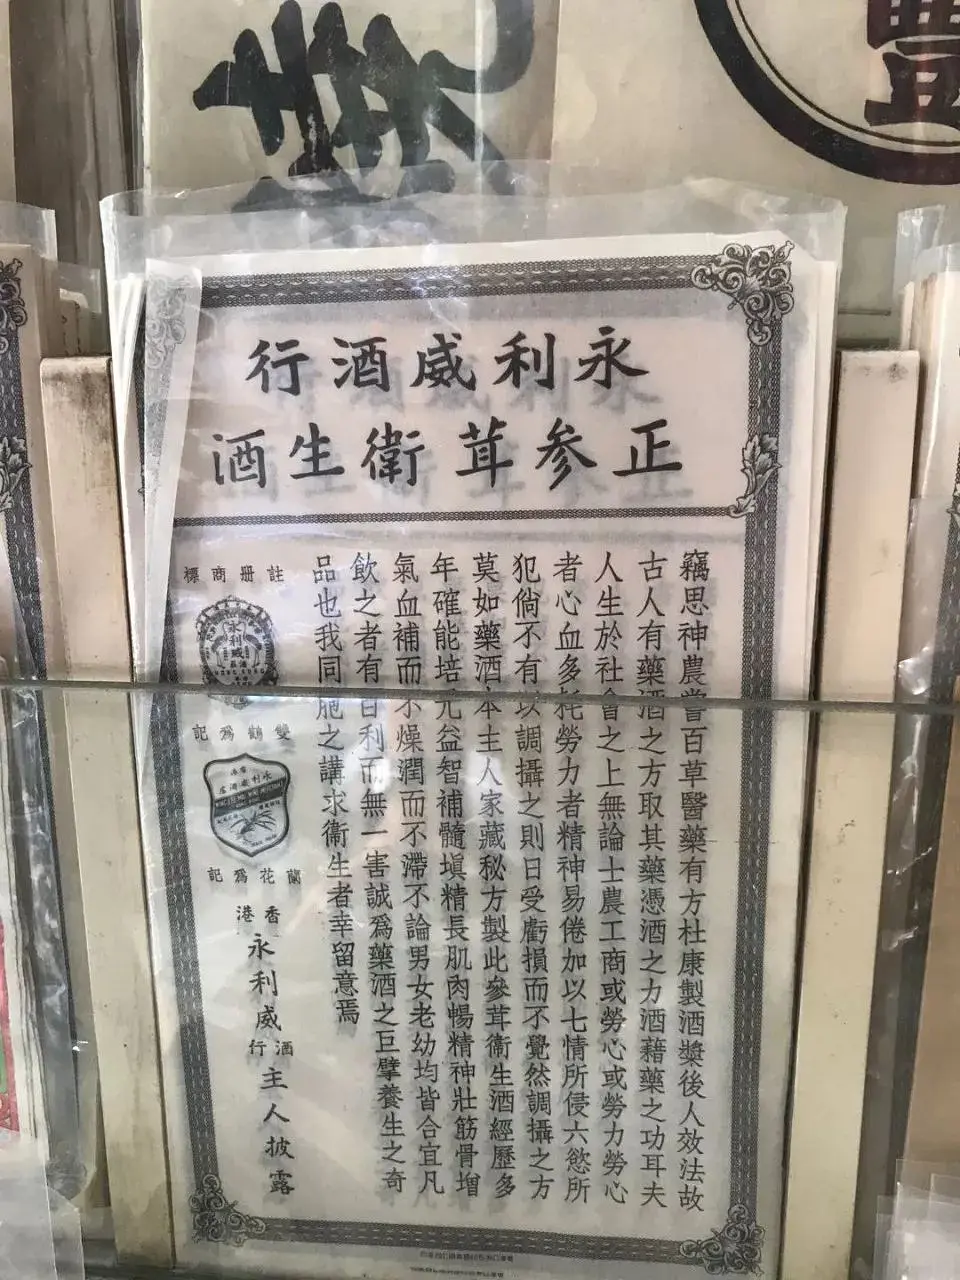 永利威酒行
正參茸衛生酒
竊思神農嘗百草醫藥有方杜康製酒漿後人效法故
古人有藥酒之方取其藥憑酒之力酒藉藥之功耳夫
人生於社會之上無論士農工商或勞心或勞力勞心
者心血多耗勞力者精神易倦加以七情所侵六慾所
犯倘不有以調攝之則日受虧損而不覺然調攝之方
莫如藥酒本主人家藏秘方製此參茸衛生酒經歷多
年確能培元益智補髓塡精長肌肉暢精神壯筋骨增
氣血補而不燥潤而不滯不論男女老幼均皆合宜凡
飲之者有百利而無一害誠爲藥酒之巨擘養生之奇
品也我同胞之講求衛生者幸留意焉
註册商標
永利威
雙鶴爲記
蘭花爲記
香港
永利威
酒行
主人披露